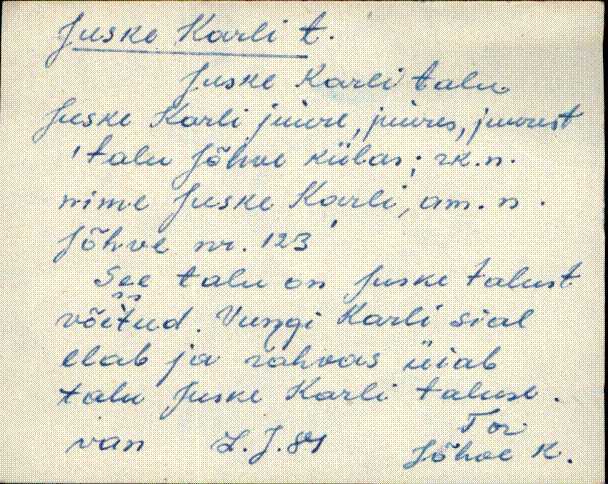 Juske Karli t.
Juske Karli talu
Juske Karli juure, juures, juurest
'talu Jõhve külas; rk.n.
nime Juske Karli, am. n.
Jõhve nr. 123
See talu on Juske talust
võitud. Vungi Karli sial
elab ja rahvas üiab
talu Juske Karli taluse.
van L. J. 81 Tor
Jõhve k.